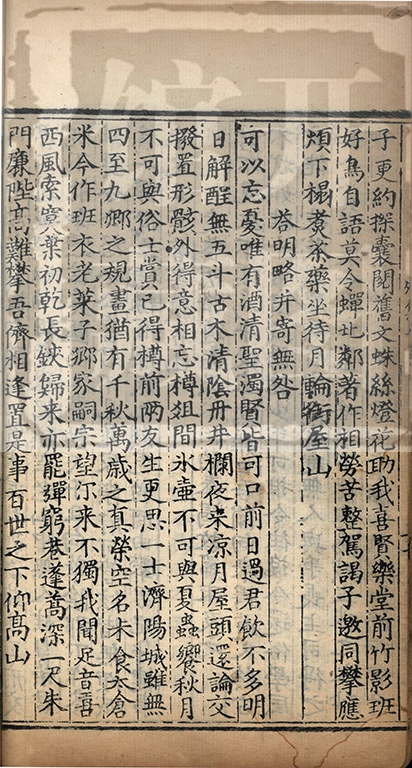 子更約探囊閱舊文蛛絲燈花助我喜賢樂堂前竹影班
好鳥自語莫令蟬北鄰著作相勞苦整駕謁子邀同攀應
煩下榻煑茶藥坐待月輪銜屋山
荅明略并寄無咎
可以忘憂唯有酒清聖濁賢皆可口前日過君飲不多明
日解酲無五斗古木清陰丹井欄夜來涼月屋頭還論交
撥置形骸外得意相忘樽俎間氷壷不可與夏蟲饗秋月
不可與俗士賞已得樽前兩友生更思一士濟陽城雖無
四至九卿之規畫猶有千秋萬歲之真榮空名未食太倉
米今作班衣老萊子鄉家嗣宗望尓来不獨我聞足音喜
西風索寞葉初乾長鋏歸来亦罷彈窮巷蓬蒿深一尺朱
門廉陛髙難攀吾儕相逢置是事百世之下仰髙山